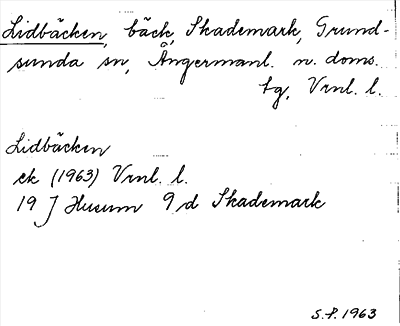 Lidbäcken, bäck, Skademark, Grund-
sunda sn, Ångermanl. n. doms.
tg, Vrnl. l.
Lidbäcken
ek (1963) Vrnl. l.
19 J Husum 9 d Skademark
S.F. 1963